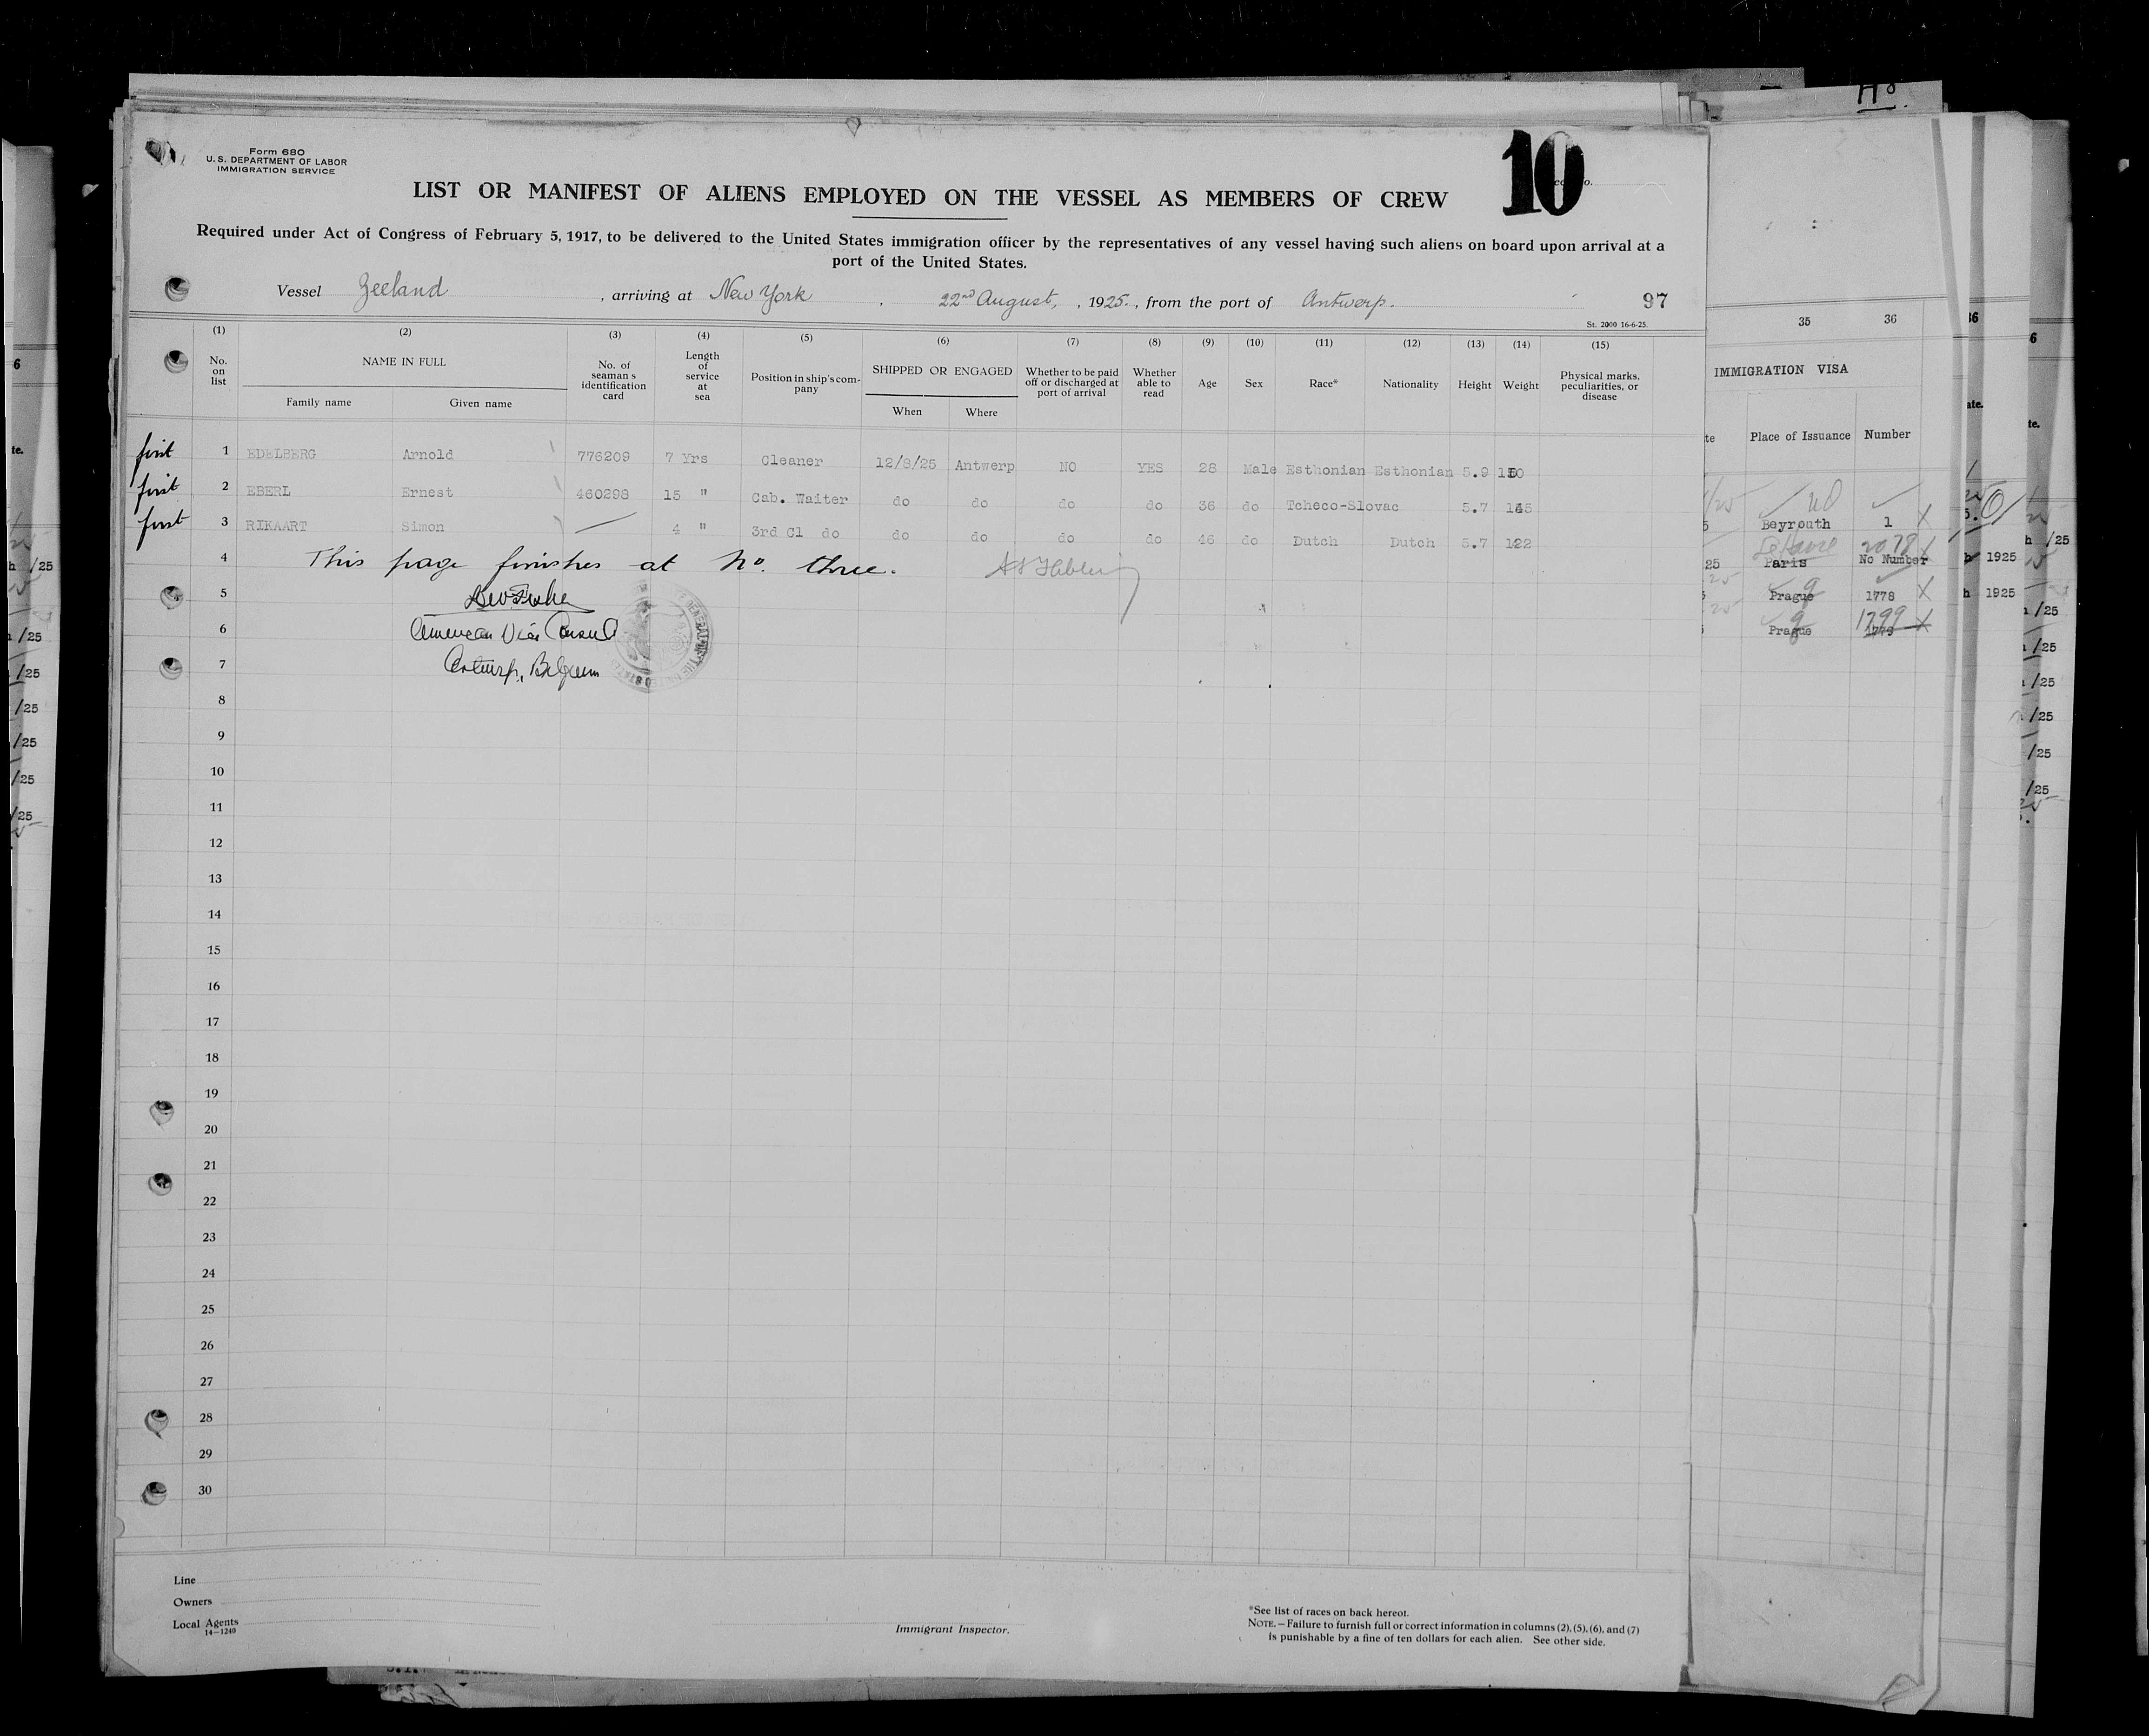 Form 680
U. S. DEPARTMENT OF LABOR
IMMIGRATION SERVICE
10
LIST OR MANIFEST OF ALIENS EMPLOYED ON THE VESSEL AS MEMBERS OF CREW
Required under Act of Congress of February 5, 1917, to be delivered to the United States immigration officer by the representatives of any vessel having such aliens on board upon arrival at a
port of the United States.
Vessel Zeeland, arriving at New York, 22nd August, 1925., from the port of Antwerp. 97
St. 2000 16-6-25.
(1) (2) (3) (4) (5) (6) (7) (8) (9) (10) (11) (12) (13) (14) (15)
No. on list NAME IN FULL Family name Given name No. of seaman s identification card Length of service at sea Position in ship's company SHIPPED OR ENGAGED When Where Whether to be paid off or discharged at port of arrival Whether able to read Age Sex Race* Nationality Height Weight Physical marks, peculiarities, or disease
first 1 EDELBERG Arnold 776209 7 Yrs Cleaner 12/8/25 Antwerp NO YES 28 Male Esthonian Esthonian 5.9
first 2 EBERL Ernest 460298 15 " Cab. Waiter do do do do 36 do Tcheco-Slovac 5.7
first 3 RIKAART Simon 4 " 3rd Cl do do do do do 46 do Dutch Dutch 5.7 122
4 This page finishes at No. three.
5
6 American Vice Consul
7 Antwerp, Belgium
8
9
10
11
12
13
14
15
16
17
18
19
20
21
22
23
24
25
26
27
28
29
30
Line
Owners
Local Agents
14—1240
Immigrant Inspector.
*See list of races on back hereof.
NOTE.—Failure to furnish full or correct information in columns (2), (5), (6), and (7)
is punishable by a fine of ten dollars for each alien. See other side.
35 36
IMMIGRATION VISA
Place of Issuance Number
Beyrouth 1
Le Havre 2078
Paris No Number
Prague 1778
1799
Prague
1925
1925